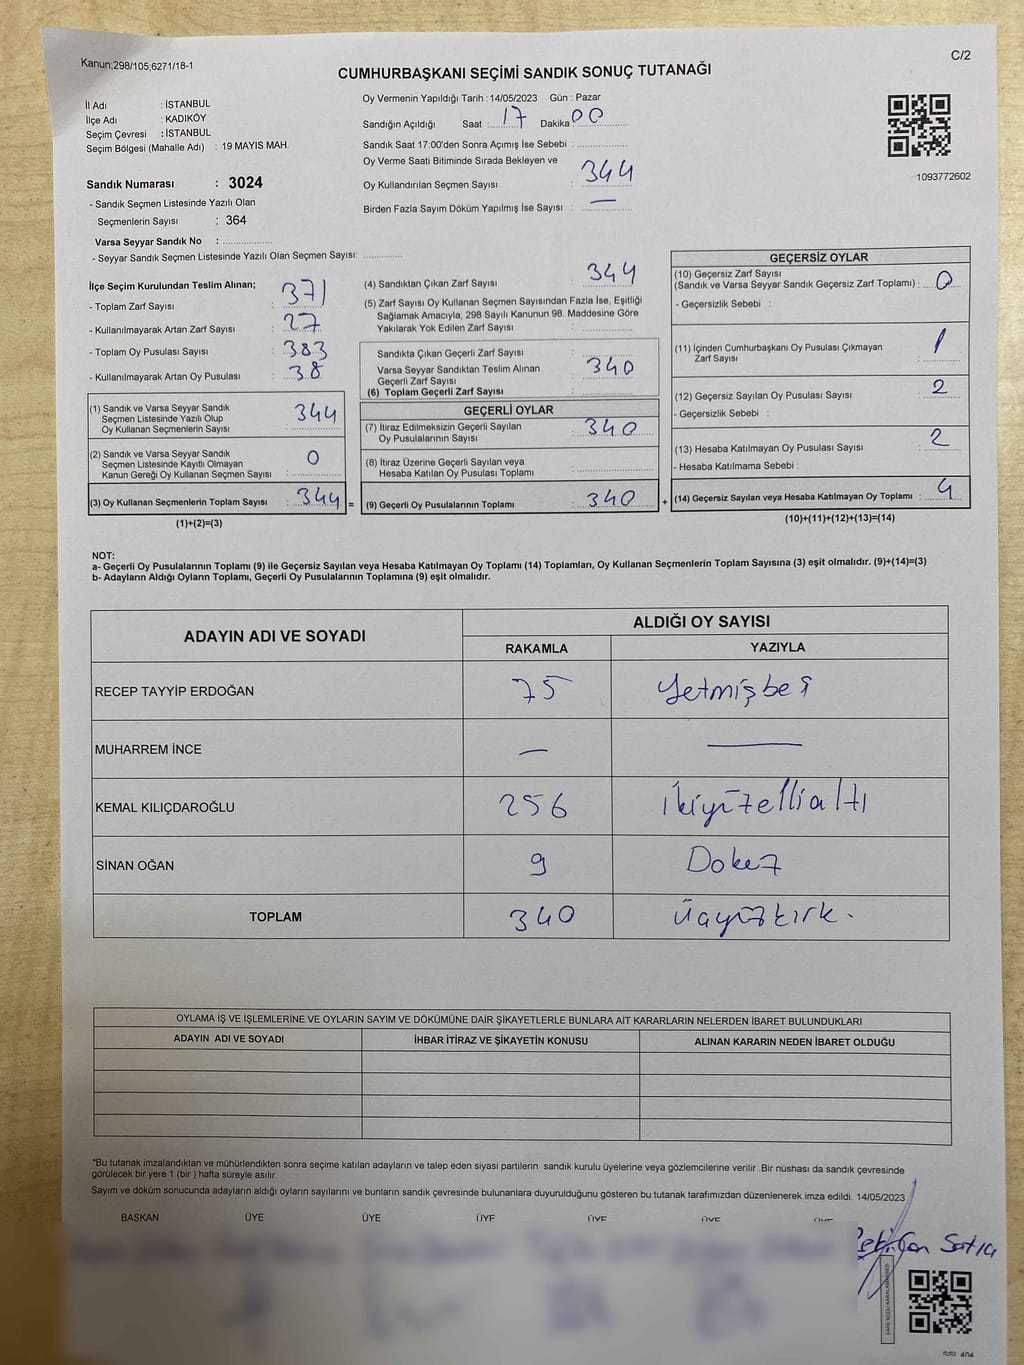 Kanun;298/105;6271/18-1
C/2
CUMHURBAŞKANI SEÇİMİ SANDIK SONUÇ TUTANAĞI
İl Adı : İSTANBUL
İlçe Adı : KADIKÖY
Seçim Çevresi : İSTANBUL
Seçim Bölgesi (Mahalle Adı) : 19 MAYIS MAH.
Sandık Numarası : 3024
- Sandık Seçmen Listesinde Yazılı Olan
Seçmenlerin Sayısı : 364
Varsa Seyyar Sandık No :
- Seyyar Sandık Seçmen Listesinde Yazılı Olan Seçmen Sayısı:
Oy Vermenin Yapıldığı Tarih :14/05/2023 Gün : Pazar
Sandığın Açıldığı Saat : 17 Dakika 00
Sandık Saat 17:00'den Sonra Açımış İse Sebebi :
Oy Verme Saati Bitiminde Sırada Bekleyen ve
Oy Kullandırılan Seçmen Sayısı : 344
Birden Fazla Sayım Döküm Yapılmış İse Sayısı : —
1093772602
İlçe Seçim Kurulundan Teslim Alınan;
- Toplam Zarf Sayısı : 371
- Kullanılmayarak Artan Zarf Sayısı : 27
- Toplam Oy Pusulası Sayısı : 383
- Kullanılmayarak Artan Oy Pusulası : 38
(1) Sandık ve Varsa Seyyar Sandık
Seçmen Listesinde Yazılı Olup
Oy Kullanan Seçmenlerin Sayısı : 344
(2) Sandık ve Varsa Seyyar Sandık
Seçmen Listesinde Kayıtlı Olmayan
Kanun Gereği Oy Kullanan Seçmen Sayısı : 0
(3) Oy Kullanan Seçmenlerin Toplam Sayısı : 344 =
(1)+(2)=(3)
(4) Sandıktan Çıkan Zarf Sayısı : 344
(5) Zarf Sayısı Oy Kullanan Seçmen Sayısından Fazla İse, Eşitliği
Sağlamak Amacıyla; 298 Sayılı Kanunun 98. Maddesine Göre
Yakılarak Yok Edilen Zarf Sayısı :
Sandıkta Çıkan Geçerli Zarf Sayısı :
Varsa Seyyar Sandıktan Teslim Alınan
Geçerli Zarf Sayısı : 340
(6) Toplam Geçerli Zarf Sayısı :
GEÇERLİ OYLAR
(7) İtiraz Edilmeksizin Geçerli Sayılan
Oy Pusulalarının Sayısı : 340
(8) İtiraz Üzerine Geçerli Sayılan veya
Hesaba Katılan Oy Pusulası Toplamı :
(9) Geçerli Oy Pusulalarının Toplamı : 340 +
GEÇERSİZ OYLAR
(10) Geçersiz Zarf Sayısı
(Sandık ve Varsa Seyyar Sandık Geçersiz Zarf Toplamı) : 0
- Geçersizlik Sebebi :
(11) İçinden Cumhurbaşkanı Oy Pusulası Çıkmayan
Zarf Sayısı : 1
(12) Geçersiz Sayılan Oy Pusulası Sayısı : 2
- Geçersizlik Sebebi :
(13) Hesaba Katılmayan Oy Pusulası Sayısı : 2
- Hesaba Katılmama Sebebi :
(14) Geçersiz Sayılan veya Hesaba Katılmayan Oy Toplamı : 4
(10)+(11)+(12)+(13)=(14)
NOT:
a- Geçerli Oy Pusulalarının Toplamı (9) ile Geçersiz Sayılan veya Hesaba Katılmayan Oy Toplamı (14) Toplamları, Oy Kullanan Seçmenlerin Toplam Sayısına (3) eşit olmalıdır. (9)+(14)=(3)
b- Adayların Aldığı Oyların Toplamı, Geçerli Oy Pusulalarının Toplamına (9) eşit olmalıdır.
ADAYIN ADI VE SOYADI
ALDIĞI OY SAYISI
RAKAMLA YAZIYLA
RECEP TAYYİP ERDOĞAN 75 Yetmişbeş
MUHARREM İNCE — —
KEMAL KILIÇDAROĞLU 256 İkiyüzellialtı
SİNAN OĞAN 9 Dokuz
TOPLAM 340 Üçyüzkırk.
OYLAMA İŞ VE İŞLEMLERİNE VE OYLARIN SAYIM VE DÖKÜMÜNE DAİR ŞİKAYETLERLE BUNLARA AİT KARARLARIN NELERDEN İBARET BULUNDUKLARI
ADAYIN ADI VE SOYADI İHBAR İTİRAZ VE ŞİKAYETİN KONUSU ALINAN KARARIN NEDEN İBARET OLDUĞU
*Bu tutanak imzalandıktan ve mühürlendikten sonra seçime katılan adayların ve talep eden siyasi partilerin sandık kurulu üyelerine veya gözlemcilerine verilir .Bir nüshası da sandık çevresinde
görülecek bir yere 1 (bir ) hafta süreyle asılır.
Sayım ve döküm sonucunda adayların aldığı oyların sayılarını ve bunların sandık çevresinde bulunanlara duyurulduğunu gösteren bu tutanak tarafımızdan düzenlenerek imza edildi. 14/05/2023
BAŞKAN ÜYE ÜYE ÜYE ÜYE ÜYE ÜYE